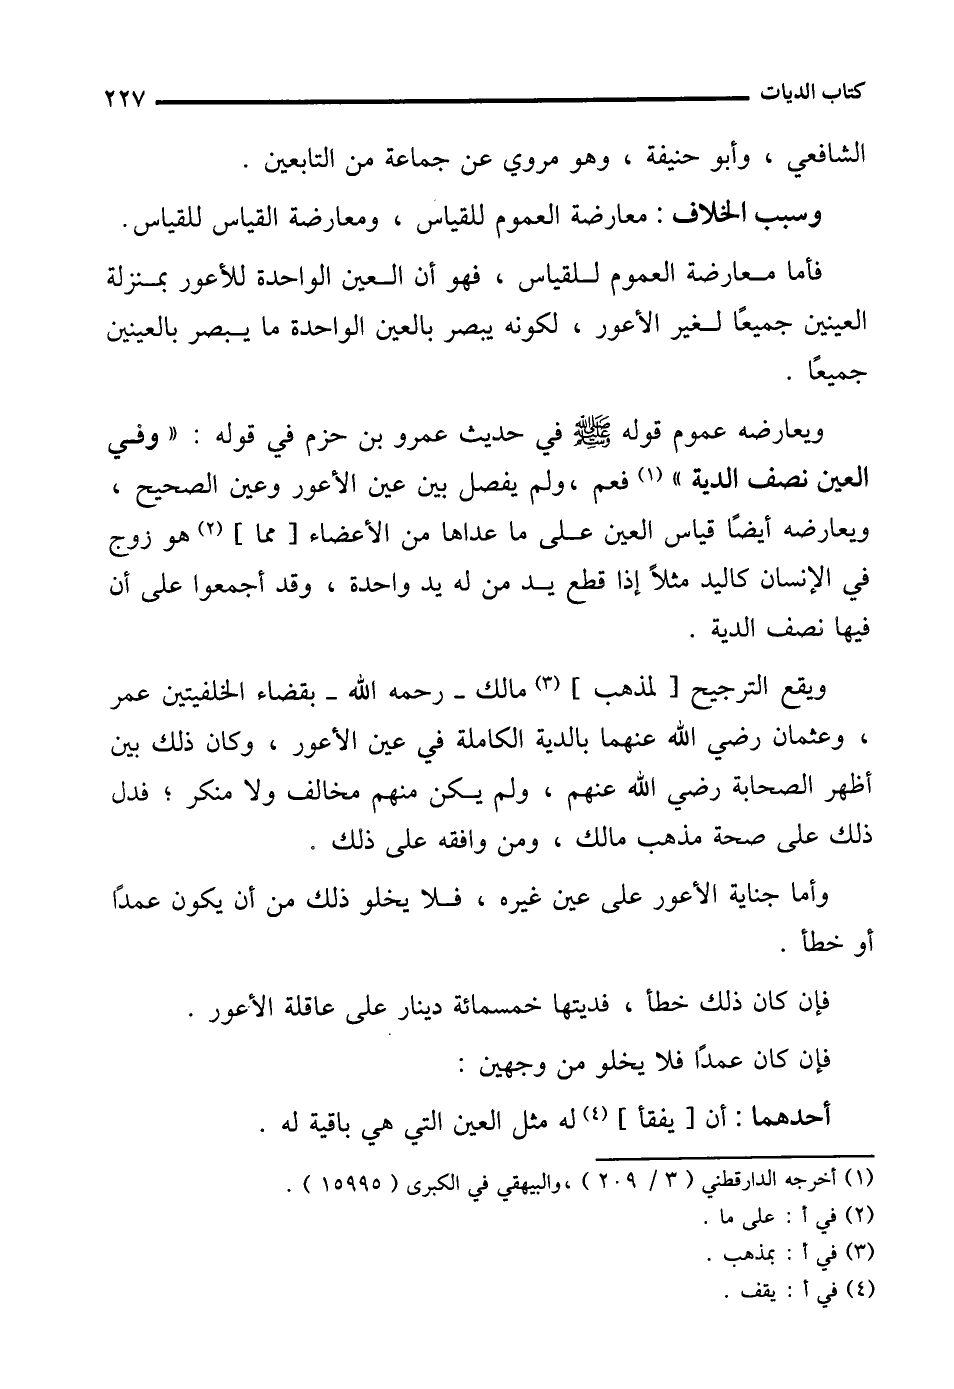 كتاب الديات ٢٢٧
الشافعي ، وأبو حنيفة ، وهو مروي عن جماعة من التابعين .
وسبب الخلاف : معارضة العموم للقياس ، ومعارضة القياس للقياس .
فأما معارضة العموم للقياس ، فهو أن العين الواحدة للأعور بمنزلة
العينين جميعًا لغير الأعور ، لكونه يبصر بالعين الواحدة ما يبصر بالعينين
جميعًا .
ويعارضه عموم قوله ﷺ في حديث عمرو بن حزم في قوله : « وفي
العين نصف الدية » (١) فعم ،ولم يفصل بين عين الأعور وعين الصحيح ،
ويعارضه أيضًا قياس العين على ما عداها من الأعضاء [ مما ] (٢) هو زوج
في الإنسان كاليد مثلاً إذا قطع يد من له يد واحدة ، وقد أجمعوا على أن
فيها نصف الدية .
ويقع الترجيح [ لمذهب ] (٣) مالك ـ رحمه الله ـ بقضاء الخلفيتين عمر
، وعثمان رضي الله عنهما بالدية الكاملة في عين الأعور ، وكان ذلك بين
أظهر الصحابة رضي الله عنهم ، ولم يكن منهم مخالف ولا منكر ؛ فدل
ذلك على صحة مذهب مالك ، ومن وافقه على ذلك .
وأما جناية الأعور على عين غيره ، فلا يخلو ذلك من أن يكون عمدًا
أو خطأ .
فإن كان ذلك خطأ ، فديتها خمسمائة دينار على عاقلة الأعور .
فإن كان عمدًا فلا يخلو من وجهين :
أحدهما : أن [ يفقأ ] (٤) له مثل العين التي هي باقية له .
(١) أخرجه الدارقطني ( ٣ / ٢٠٩ ) ،والبيهقي في الكبرى ( ١٥٩٩٥ ) .
(٢) في أ : على ما .
(٣) في أ : بمذهب .
(٤) في أ : يقف .